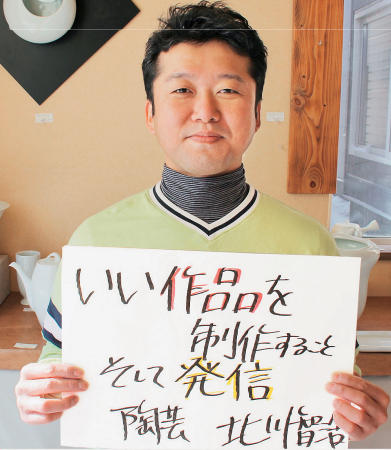 いい作品を
制作すること
そして発信
陶芸 北川智